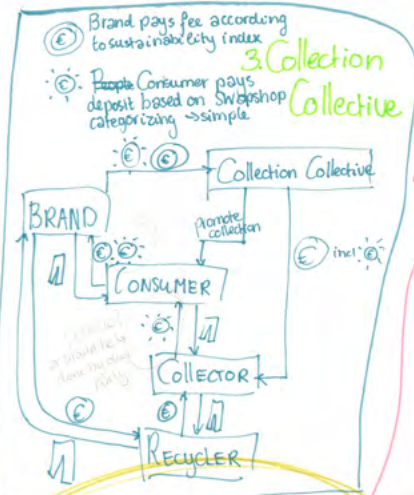 € Brand pays fee according
to sustainability index
3. Collection
Collective
€ People Consumer pays
deposit based on Swapshop
categorizing → simple
€ €
Collection Collective
BRAND
promote
collection
€ incl. €
€ €
CONSUMER
€
done by
COLLECTOR
€
€
RECYCLER